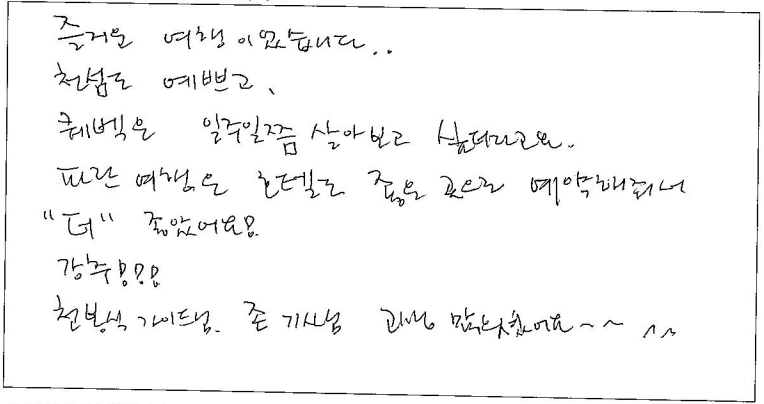 즐거운 여행이었습니다..
천섬도 예쁘고,
퀘벡은 일주일쯤 살아보고 싶더라고요.
파란 여행은 호텔도 좋은 곳으로 예약해줘서
"더" 좋았어요!
강추!!!
천봉식 가이드님. 존 기사님 고생 많으셨어요~~ ^^